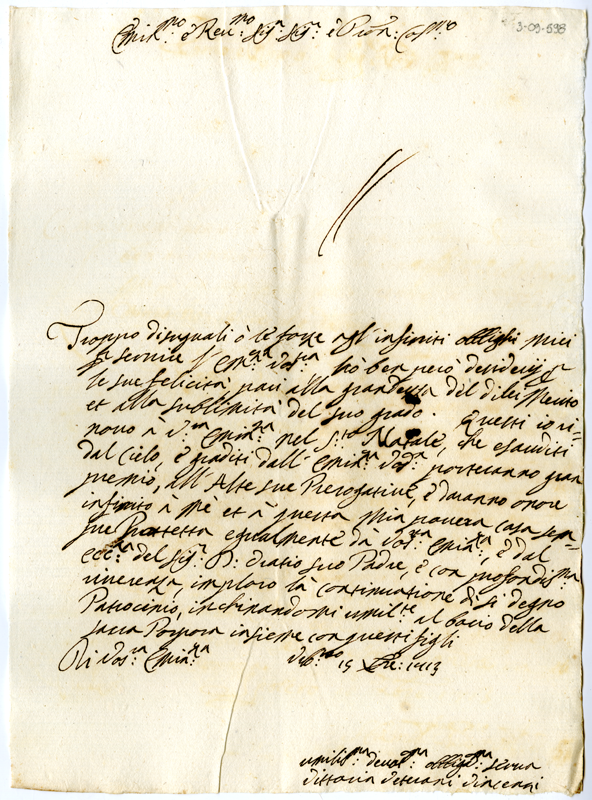 3-09-598
Emin.mo e Reu.mo Sig.r Sig.r e Pron: Col.mo
Troppo disuguali ò le forze agl' infiniti obblighi miei
p seruire l' Em.za Vos.ra hò ben però desiderij p
le sue felicità, pari alla grandezza del di lei Merito
et alla sublimità del suo grado. Questi io ri-
nouo à V.ra Emin.za nel S.to Natale, che esauditi
dal Cielo, è graditi dall' Emin.za Vos.ra porteranno gran
premio, all' Alte sue Prerogatiue, è daranno onore
infinito à mè et à questa mia pouera casa sem-
pre Protetta egualmente dà Vos.ra Emin.za, è dal
Ecc.mo del Sig.r D: Liuio suo Padre, è con profondis.ma
riuerenza, imploro la continuatione di si degno
Patrocinio, inchinandomi umil.te al bacio della
sacra Porpora insieme con questi figli
Di Vos.ra Emin.za 15 Xbre: 1713
umilis.ma deuot.ma obblig.ma serua
Vittoria